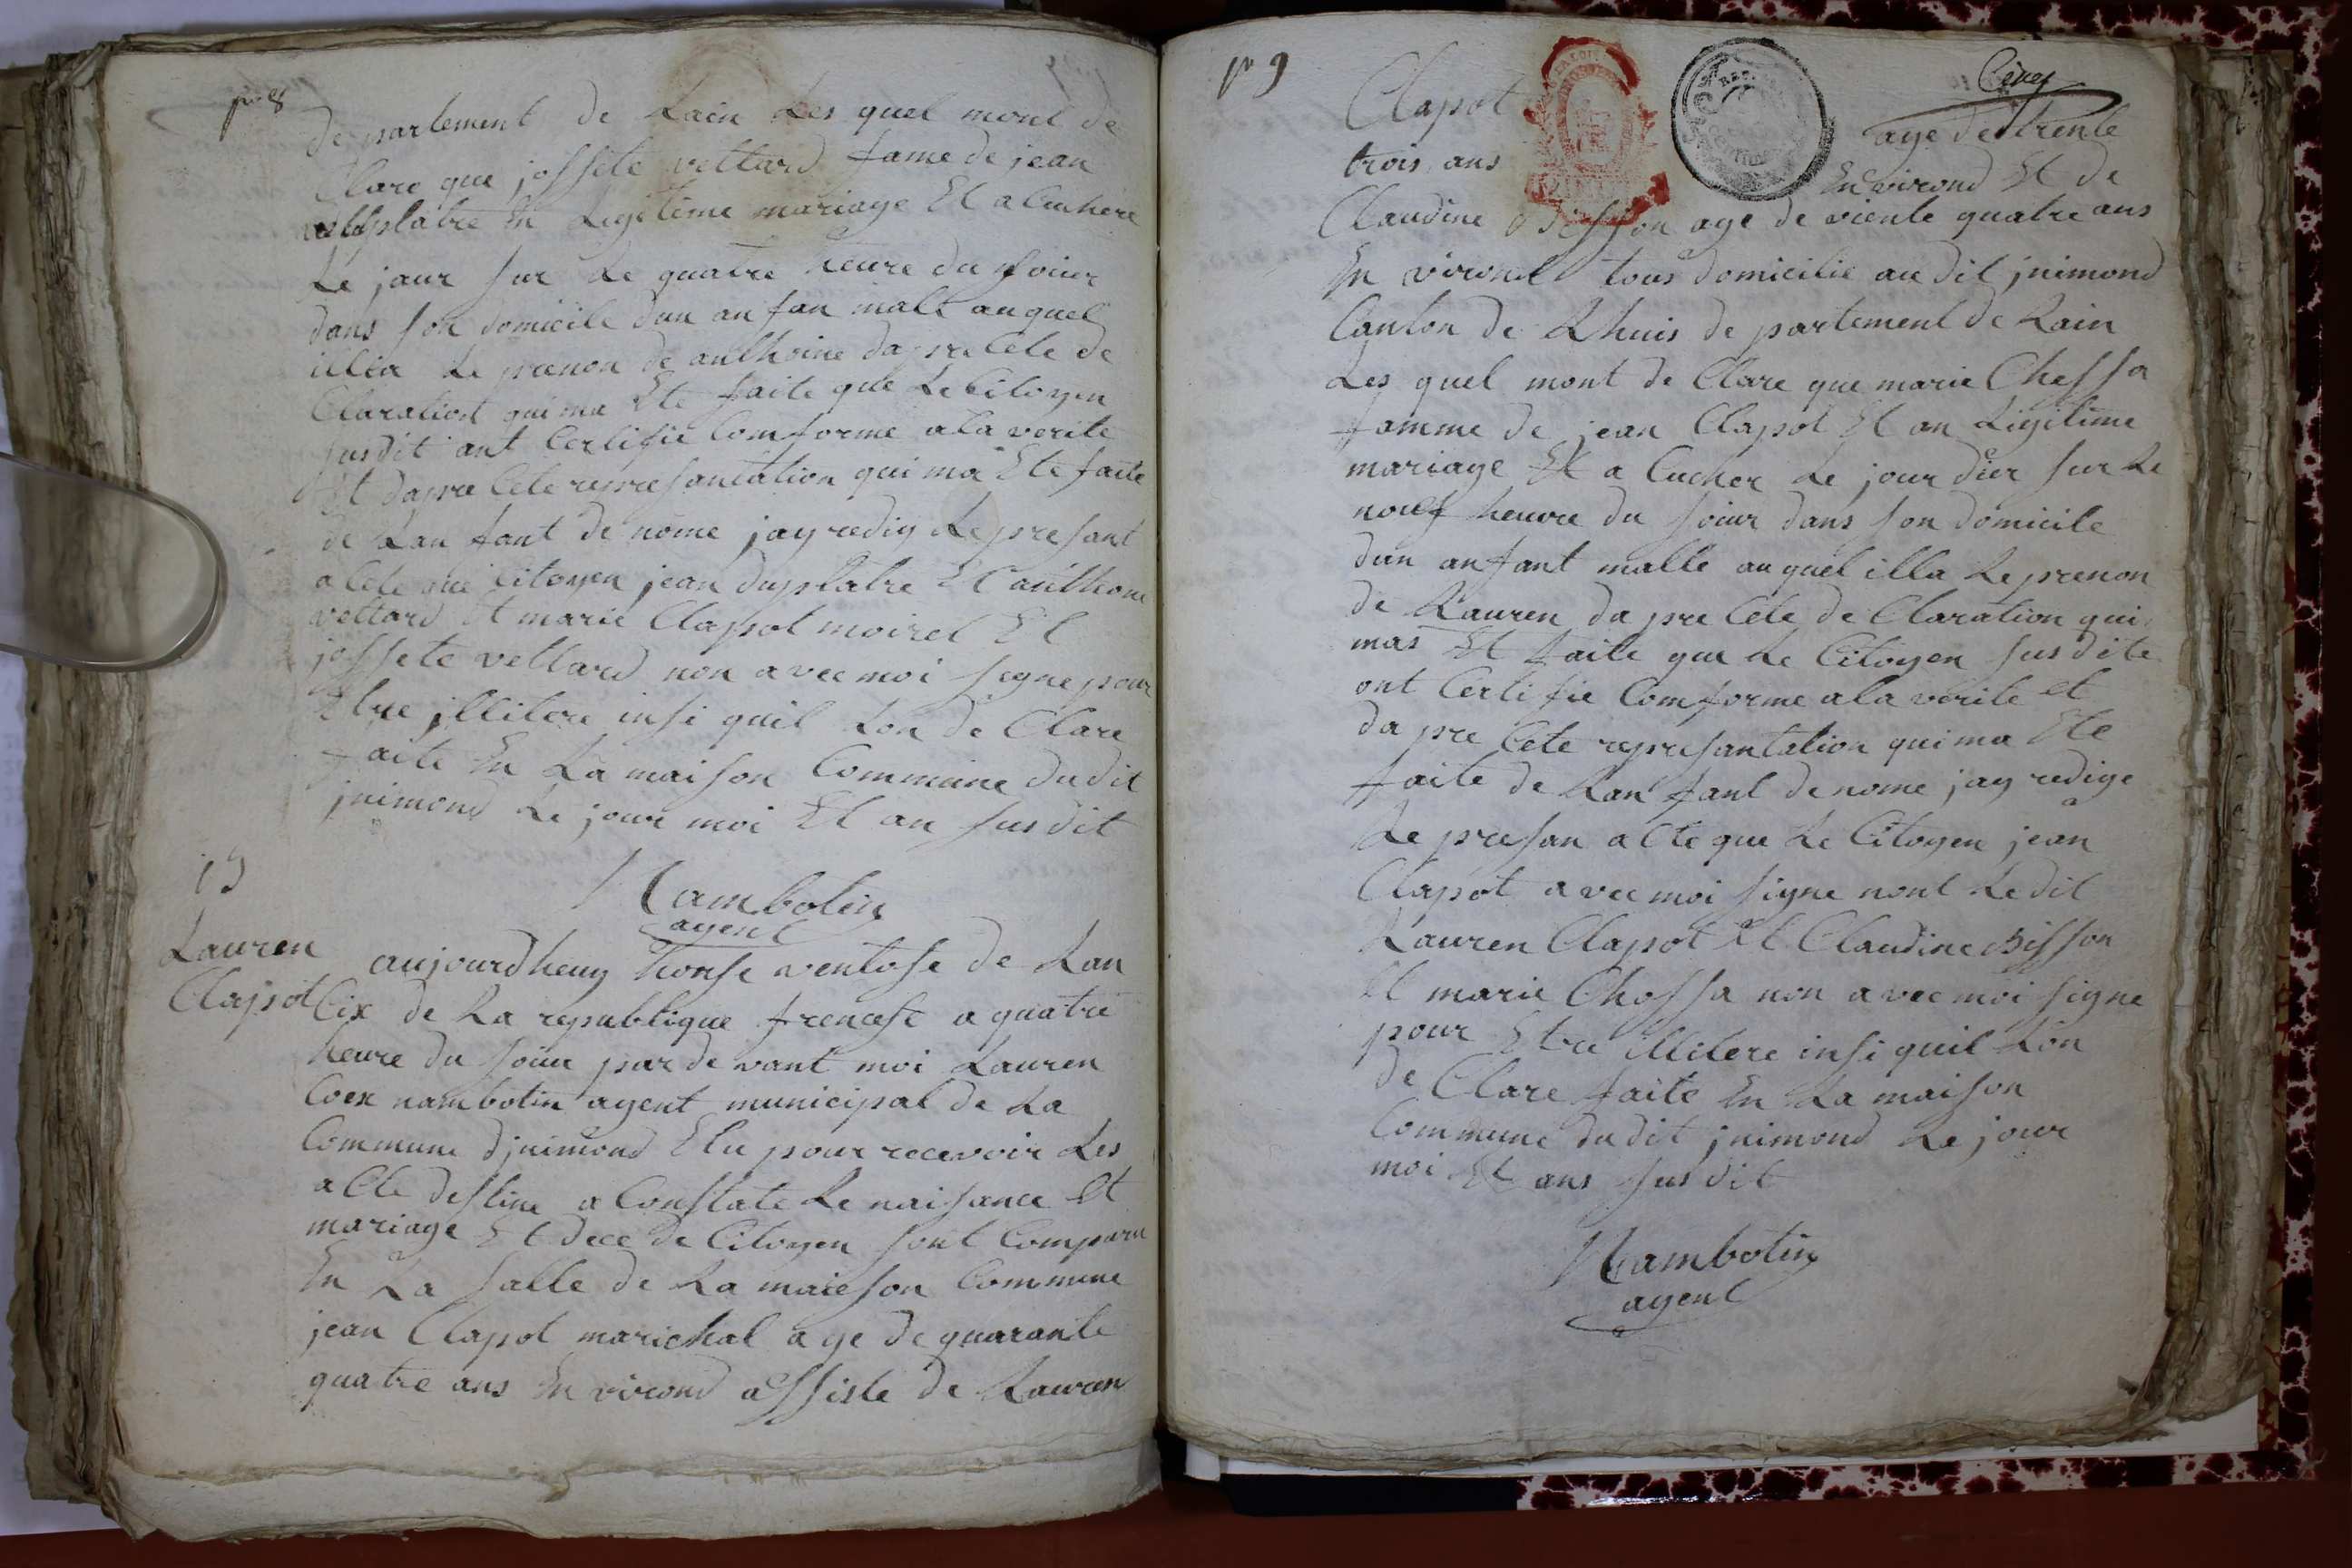 pr 8
de partement de Lain Les quel mont de
Clare que jossete vettard fame de jean
duplatre En Legitime mariage Et a Cuchere
Le jour sur Le quatre heure du soiur
dans son domicile dun an fan malt auquel
illia Le prenon de anthoine dapre Cete de
Claration qui ma Ete faite que Le Citoyen
susdit ant Certifie Comforme ala verite
Et dapre Cete represantation qui ma Ete faite
de Lan fant de nome jay redig Le presant
a Cte que Citoyen jean duplatre Et anthoine
vettard Et marie Clapot moirel Et
jossete vettard non avec moi signe pour
Etre jllitere insi quil Lon de Clare
faite En La maison Commune dudit
jnimond Le jour moi Et an susdit
Nambotin
agent
19
Lauren
Clapot
aujourdheuy honse ventose de Lan
Cix de La republique frencese a quatre
heure du soiur par de vant moi Lauren
Coex nambotin agent municipal de La
Commune djnimond Elu pour recevoir Les
a Cte destine a Constate Le naisance Et
mariage Et dece de Citoyen sont Comparu
En La salle de La maieson Commune
jean Clapot marichal age de quarante
quatre ans En virond assiste de Lauren
pr 9
Clapot age de trente
trois ans En virond Et de
Claudine Bisson age de viente quatre ans
En virond tous domicilie au dit jnimond
Canton de Lhuis de partement de Lain
Les quel mont de Clare que marie Chossa
famme de jean Clapot Et an Legitime
mariage Et a Cucher Le jour dier sur Le
nouf heure du soiur dans son domicile
dun anfant malle auquel illa Le prenon
de Lauren da pre Cete de Claration qui
mas Et faite que Le Citoyen susdite
ont Certifie Comforme ala verite et
da pre Cete represantation qui ma Ete
faite de Lan fant de nome jay redige
Le presan a Cte que Le Citoyen jean
Clapot avec moi signe nont Le dit
Lauren Clapot Et Claudine Bisson
Et marie Chossa non avec moi signe
pour Etre illitere insi quil Lon
de Clare faite En La maison
Commune du dit jnimond Le jour
moi Et ans susdit
Nambotin
agent